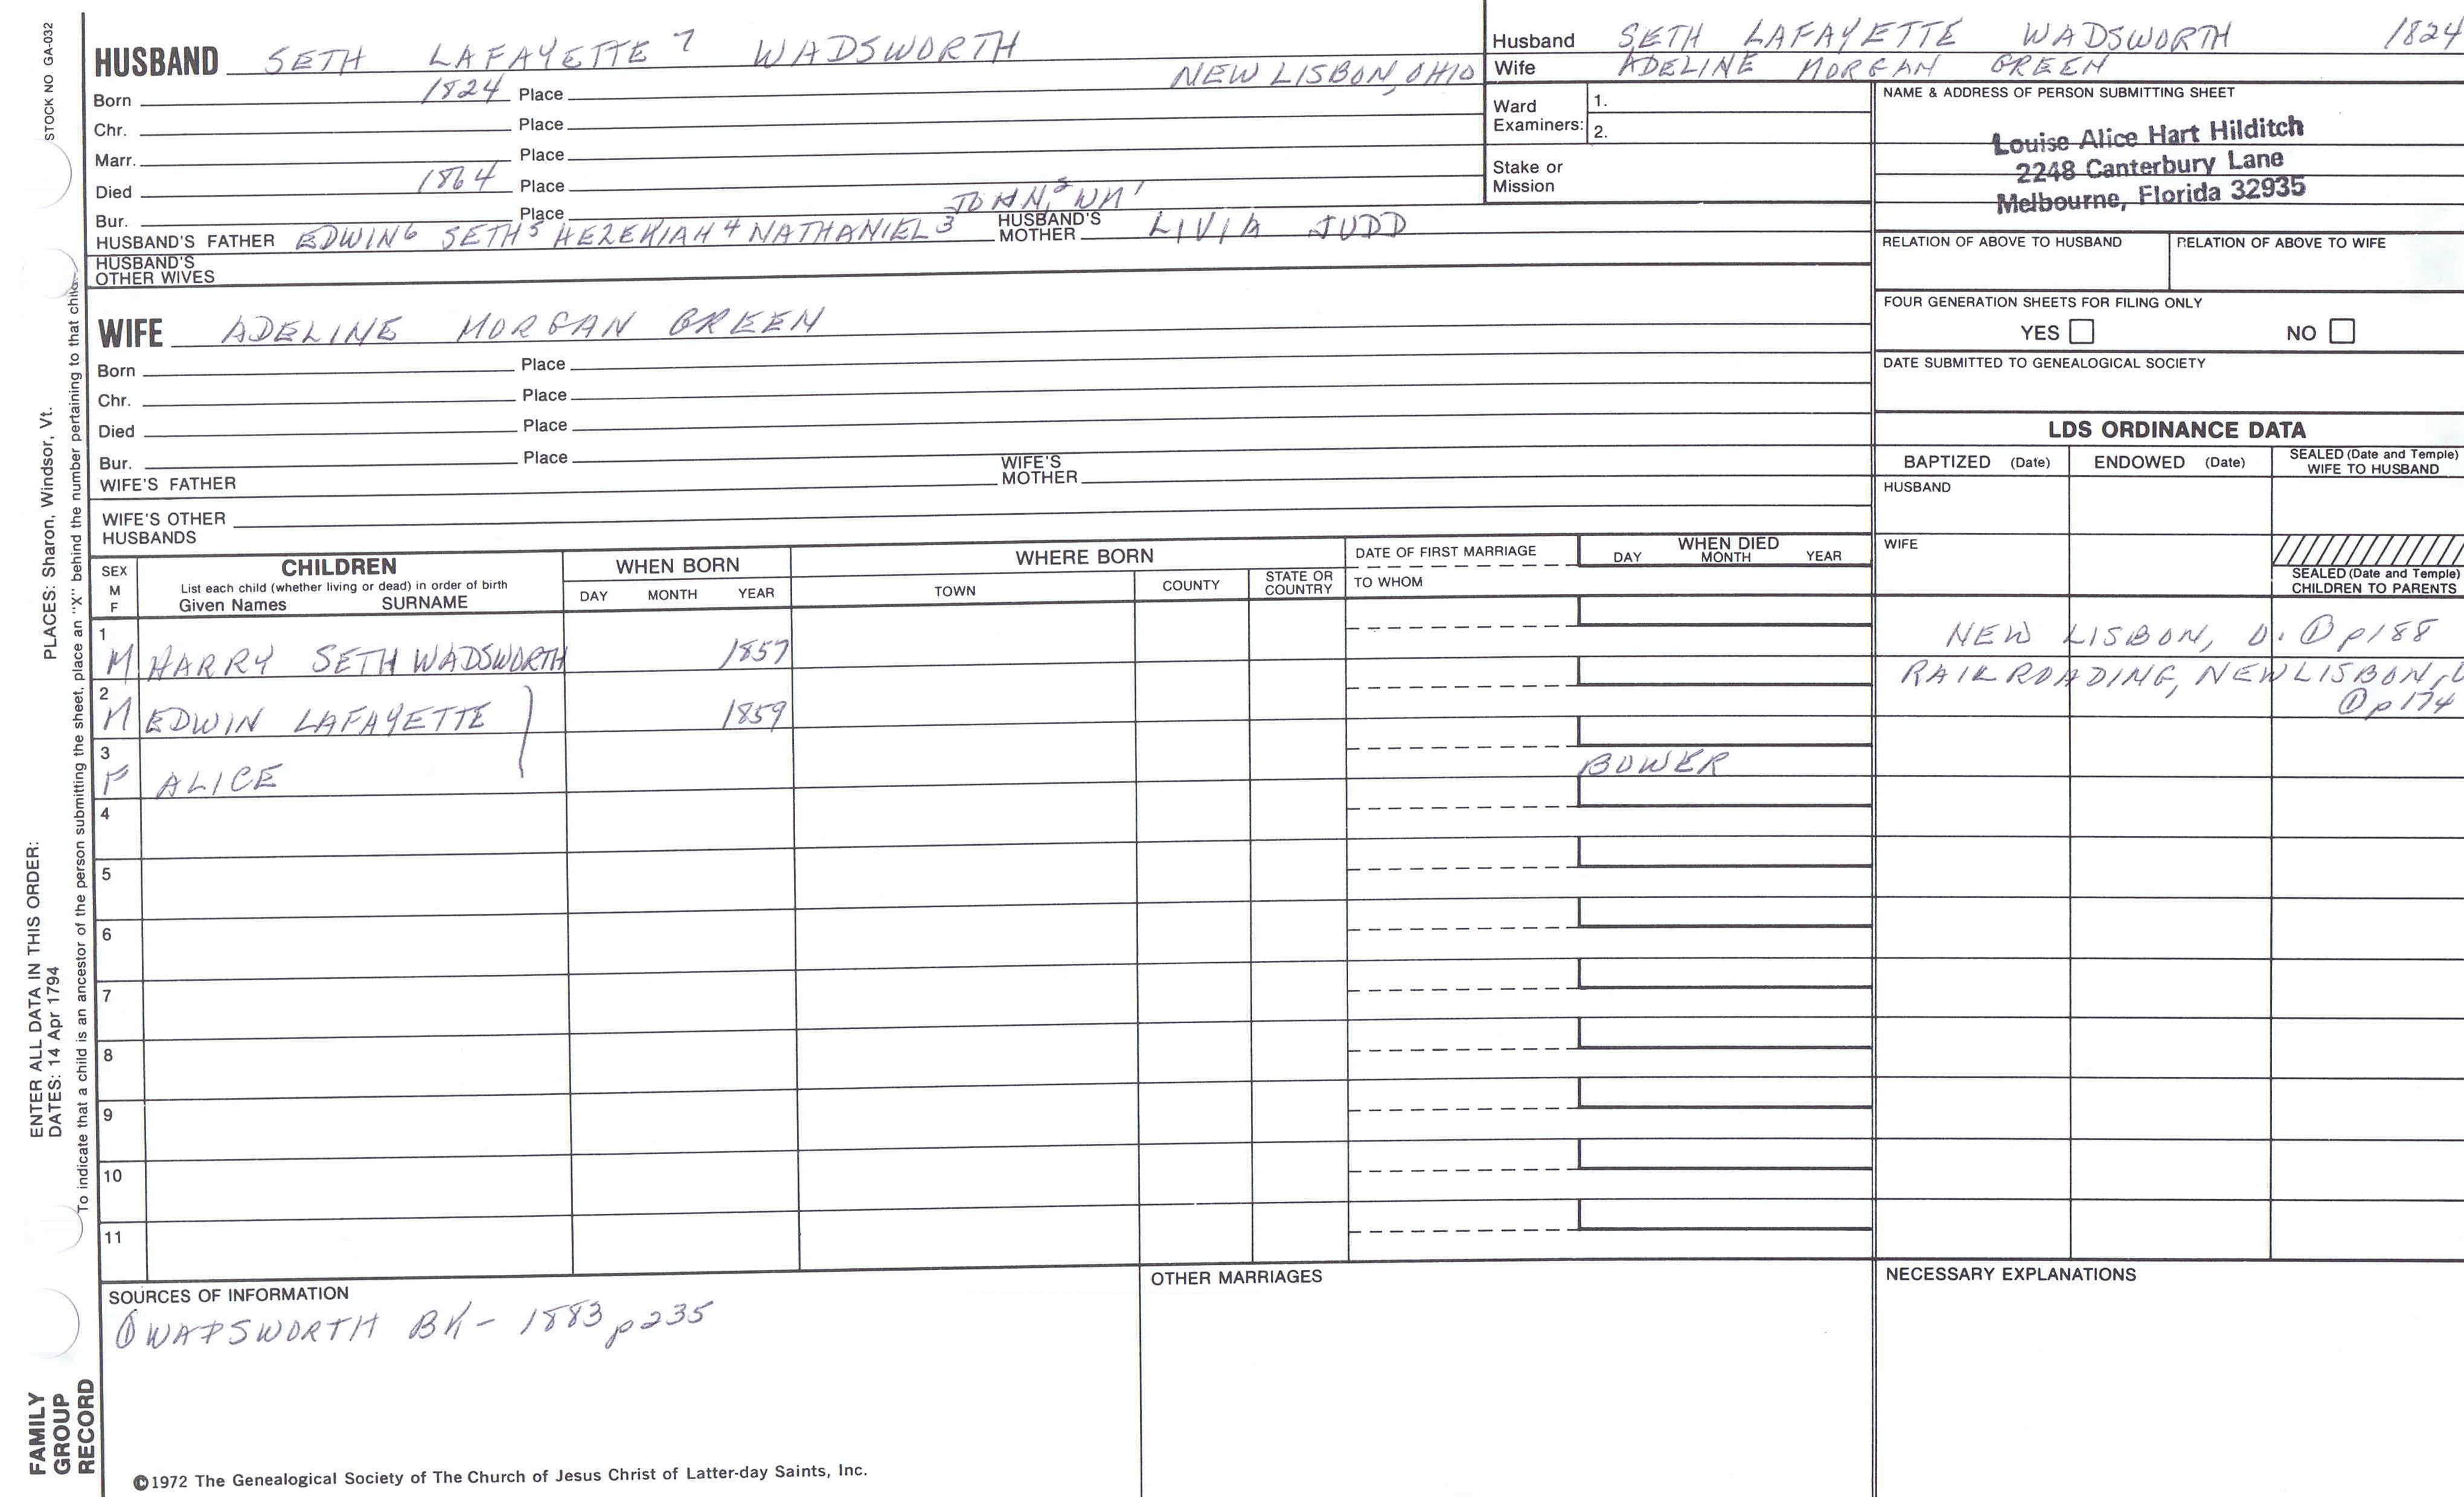 STOCK NO GA-032
HUSBAND SETH LAFAYETTE 7 WADSWORTH
Born 1824 Place NEW LISBON, OHIO
Chr. Place
Marr. Place
Died 1864 Place
Bur. Place JOHN,2 WM1
HUSBAND'S FATHER EDWIN6 SETH5 HEZEKIAH4 NATHANIEL3 HUSBAND'S MOTHER LIVIA JUDD
HUSBAND'S OTHER WIVES
WIFE ADELINE MORGAN GREEN
Born Place
Chr. Place
Died Place
Bur. Place
WIFE'S FATHER WIFE'S MOTHER
WIFE'S OTHER HUSBANDS
Husband SETH LAFAYETTE WADSWORTH 1824
Wife ADELINE MORGAN GREEN
Ward Examiners: 1.
2.
Stake or Mission
NAME & ADDRESS OF PERSON SUBMITTING SHEET
Louise Alice Hart Hilditch
2248 Canterbury Lane
Melbourne, Florida 32935
RELATION OF ABOVE TO HUSBAND RELATION OF ABOVE TO WIFE
FOUR GENERATION SHEETS FOR FILING ONLY
YES NO
DATE SUBMITTED TO GENEALOGICAL SOCIETY
LDS ORDINANCE DATA
BAPTIZED (Date) ENDOWED (Date) SEALED (Date and Temple) WIFE TO HUSBAND
HUSBAND
WIFE
SEALED (Date and Temple) CHILDREN TO PARENTS
SEX M F
CHILDREN
List each child (whether living or dead) in order of birth
Given Names SURNAME
WHEN BORN
DAY MONTH YEAR
WHERE BORN
TOWN COUNTY STATE OR COUNTRY
DATE OF FIRST MARRIAGE
TO WHOM
WHEN DIED
DAY MONTH YEAR
1 M HARRY SETH WADSWORTH 1857 NEW LISBON, O. ① p188
2 M EDWIN LAFAYETTE 1859 RAILROADING, NEW LISBON, O
① p174
3 F ALICE BOWER
4
5
6
7
8
9
10
11
SOURCES OF INFORMATION
① WADSWORTH BK - 1883 p235
OTHER MARRIAGES
NECESSARY EXPLANATIONS
©1972 The Genealogical Society of The Church of Jesus Christ of Latter-day Saints, Inc.
FAMILY GROUP RECORD
ENTER ALL DATA IN THIS ORDER:
DATES: 14 Apr 1794 PLACES: Sharon, Windsor, Vt.
To indicate that a child is an ancestor of the person submitting the sheet, place an "X" behind the number pertaining to that child.